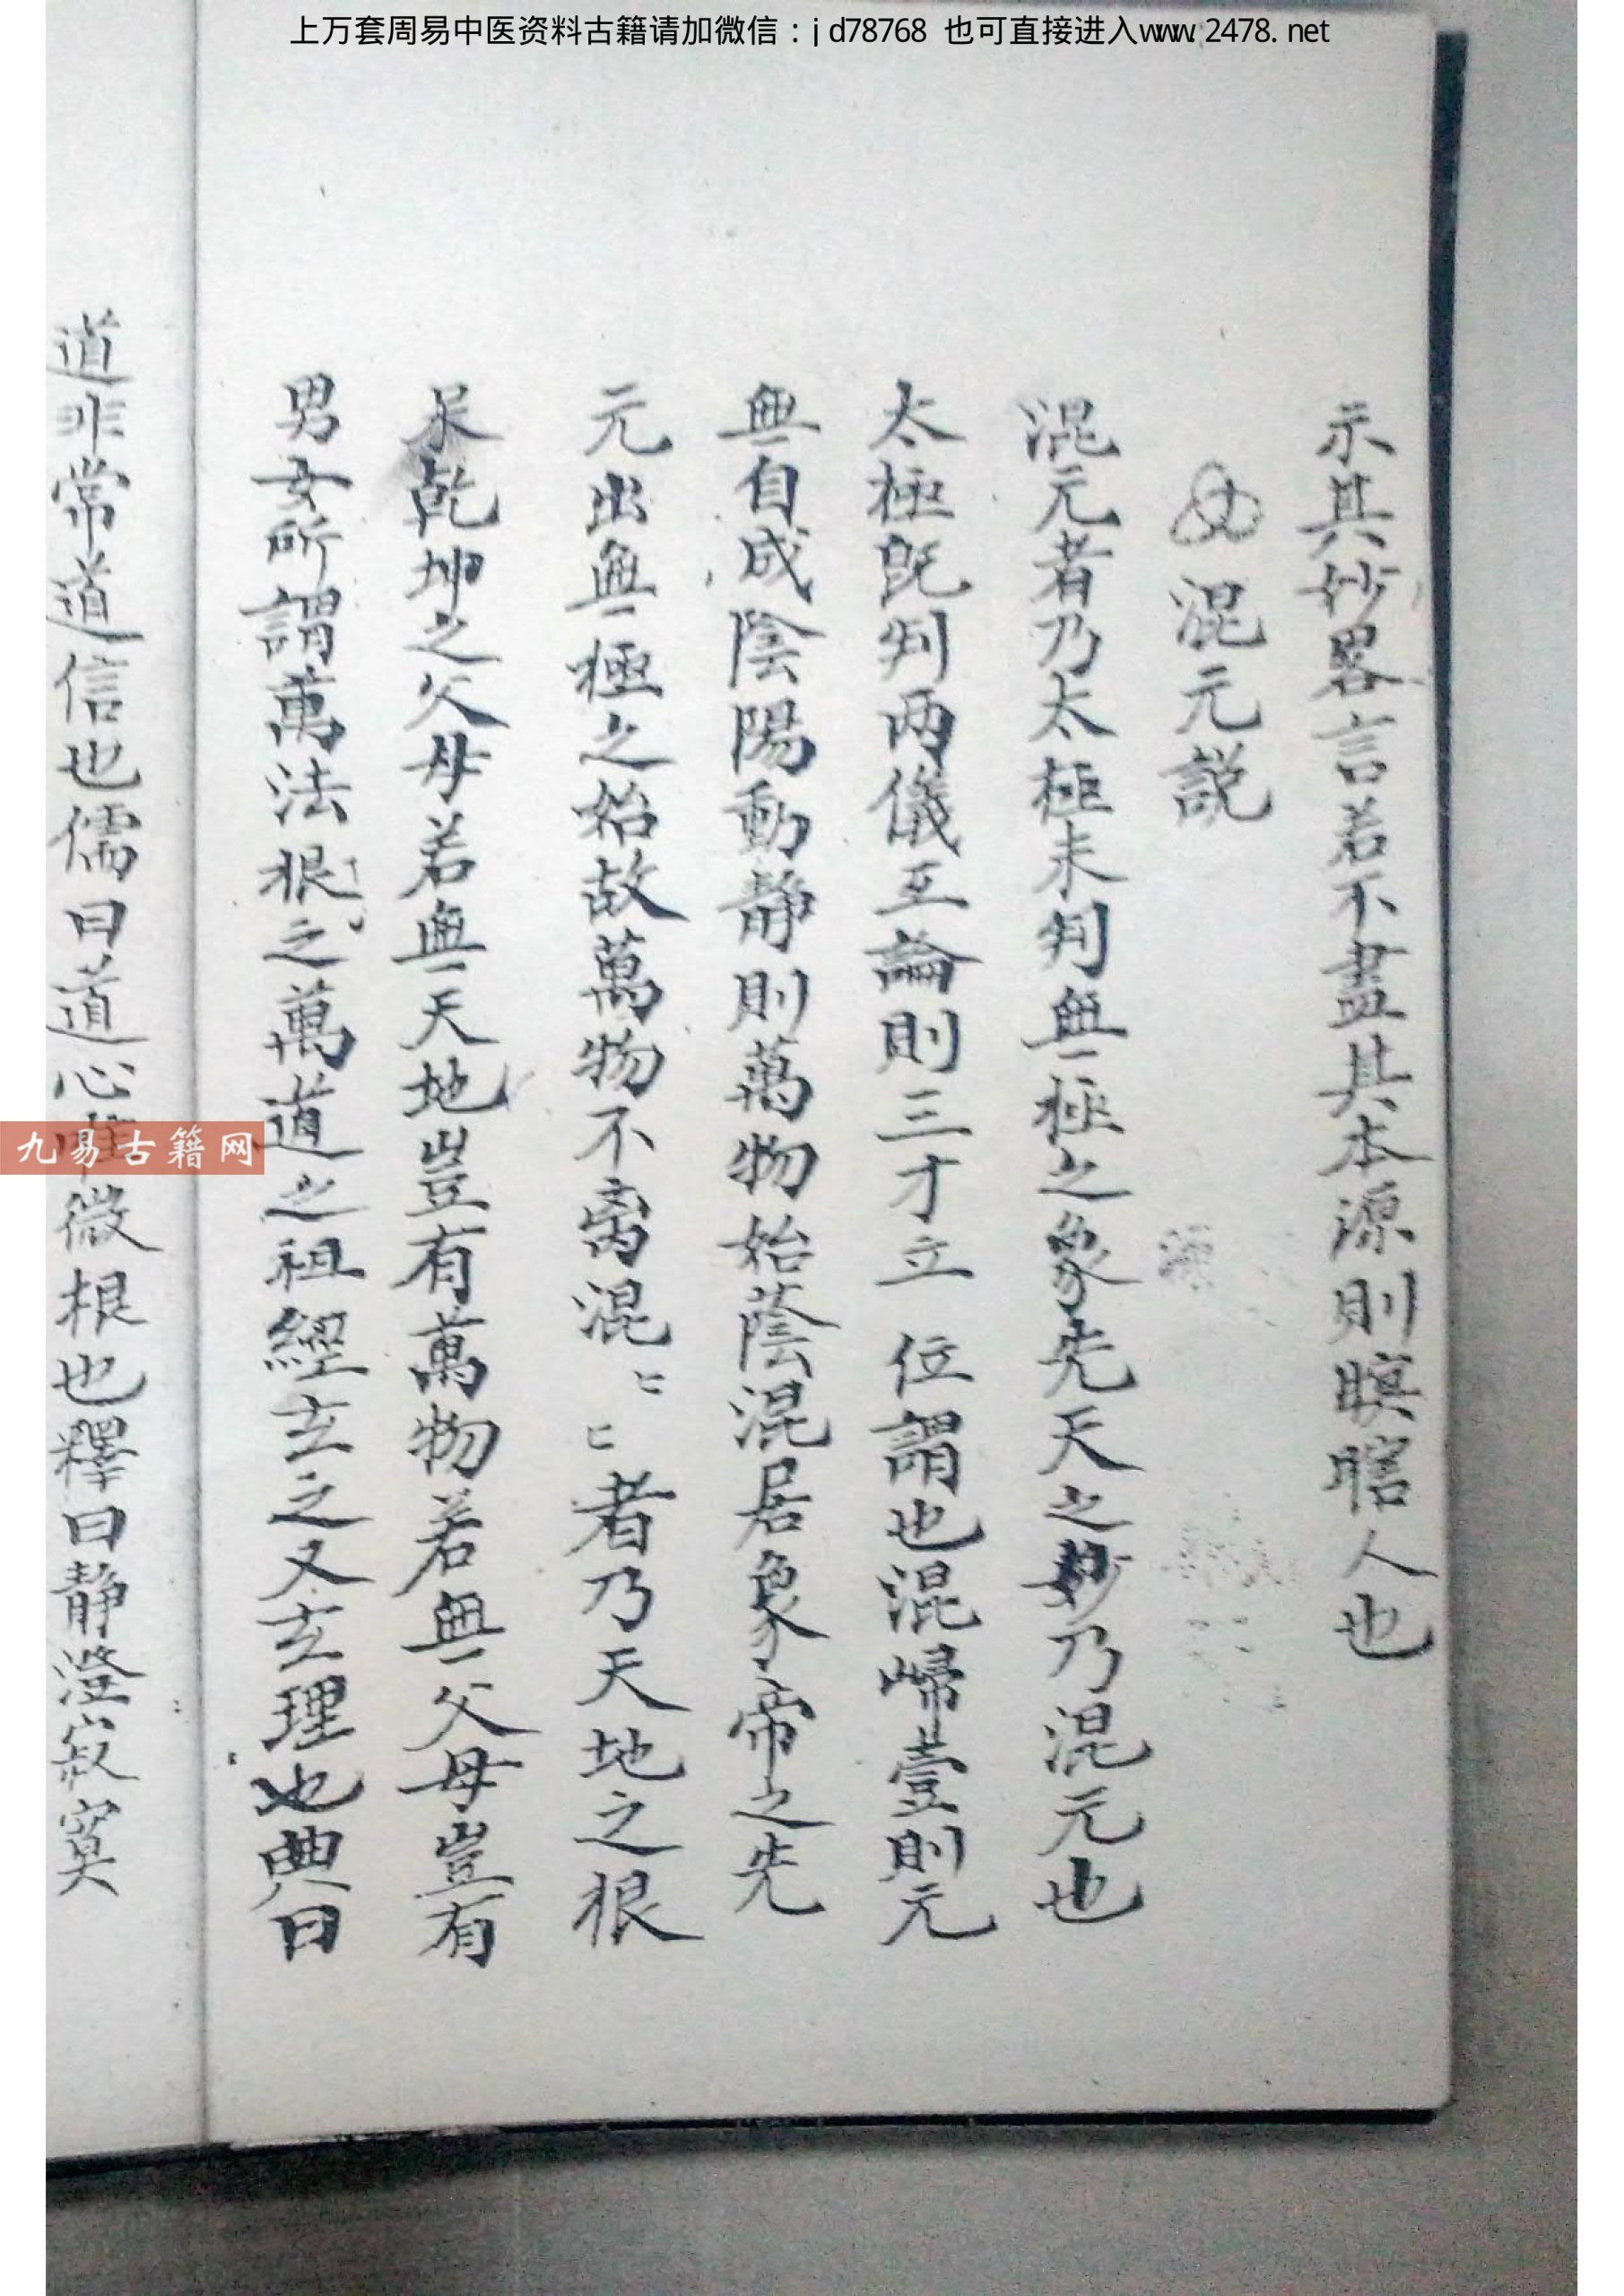 上万套周易中医资料古籍请加微信：jd78768 也可直接进入www.2478.net
示其妙畧言若不盡其本源則瞑瞎人也
混元説
混元者乃太極未判無極之象先天之妙乃混元也
太極既判两儀互論則三才立位謂也混歸壹則元
無自成陰陽動静則萬物始蔭混居象帝之先
元出無極之始故萬物不离混〻〻者乃天地之根
乾坤之父母若無天地豈有萬物若無父母豈有
男女所謂萬法根之萬道之祖經玄之又玄理也典曰
道非常道信也儒曰道心惟微根也釋曰静澄寂寞
九易古籍网